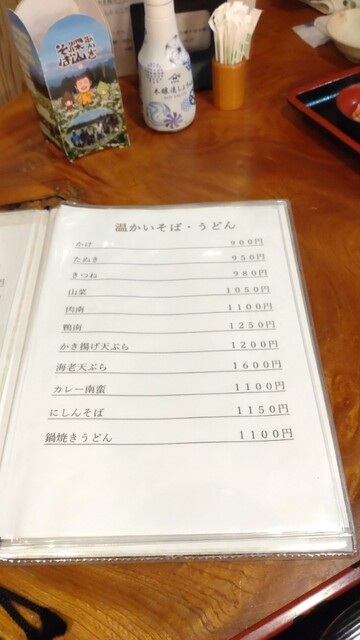 本醸造しょうゆ
温かいそば・うどん
かけ 900円
たぬき 950円
きつね 980円
山菜 1050円
肉南 1100円
鴨南 1250円
かき揚げ天ぷら 1200円
海老天ぷら 1600円
カレー南蛮 1100円
にしんそば 1150円
鍋焼きうどん 1100円